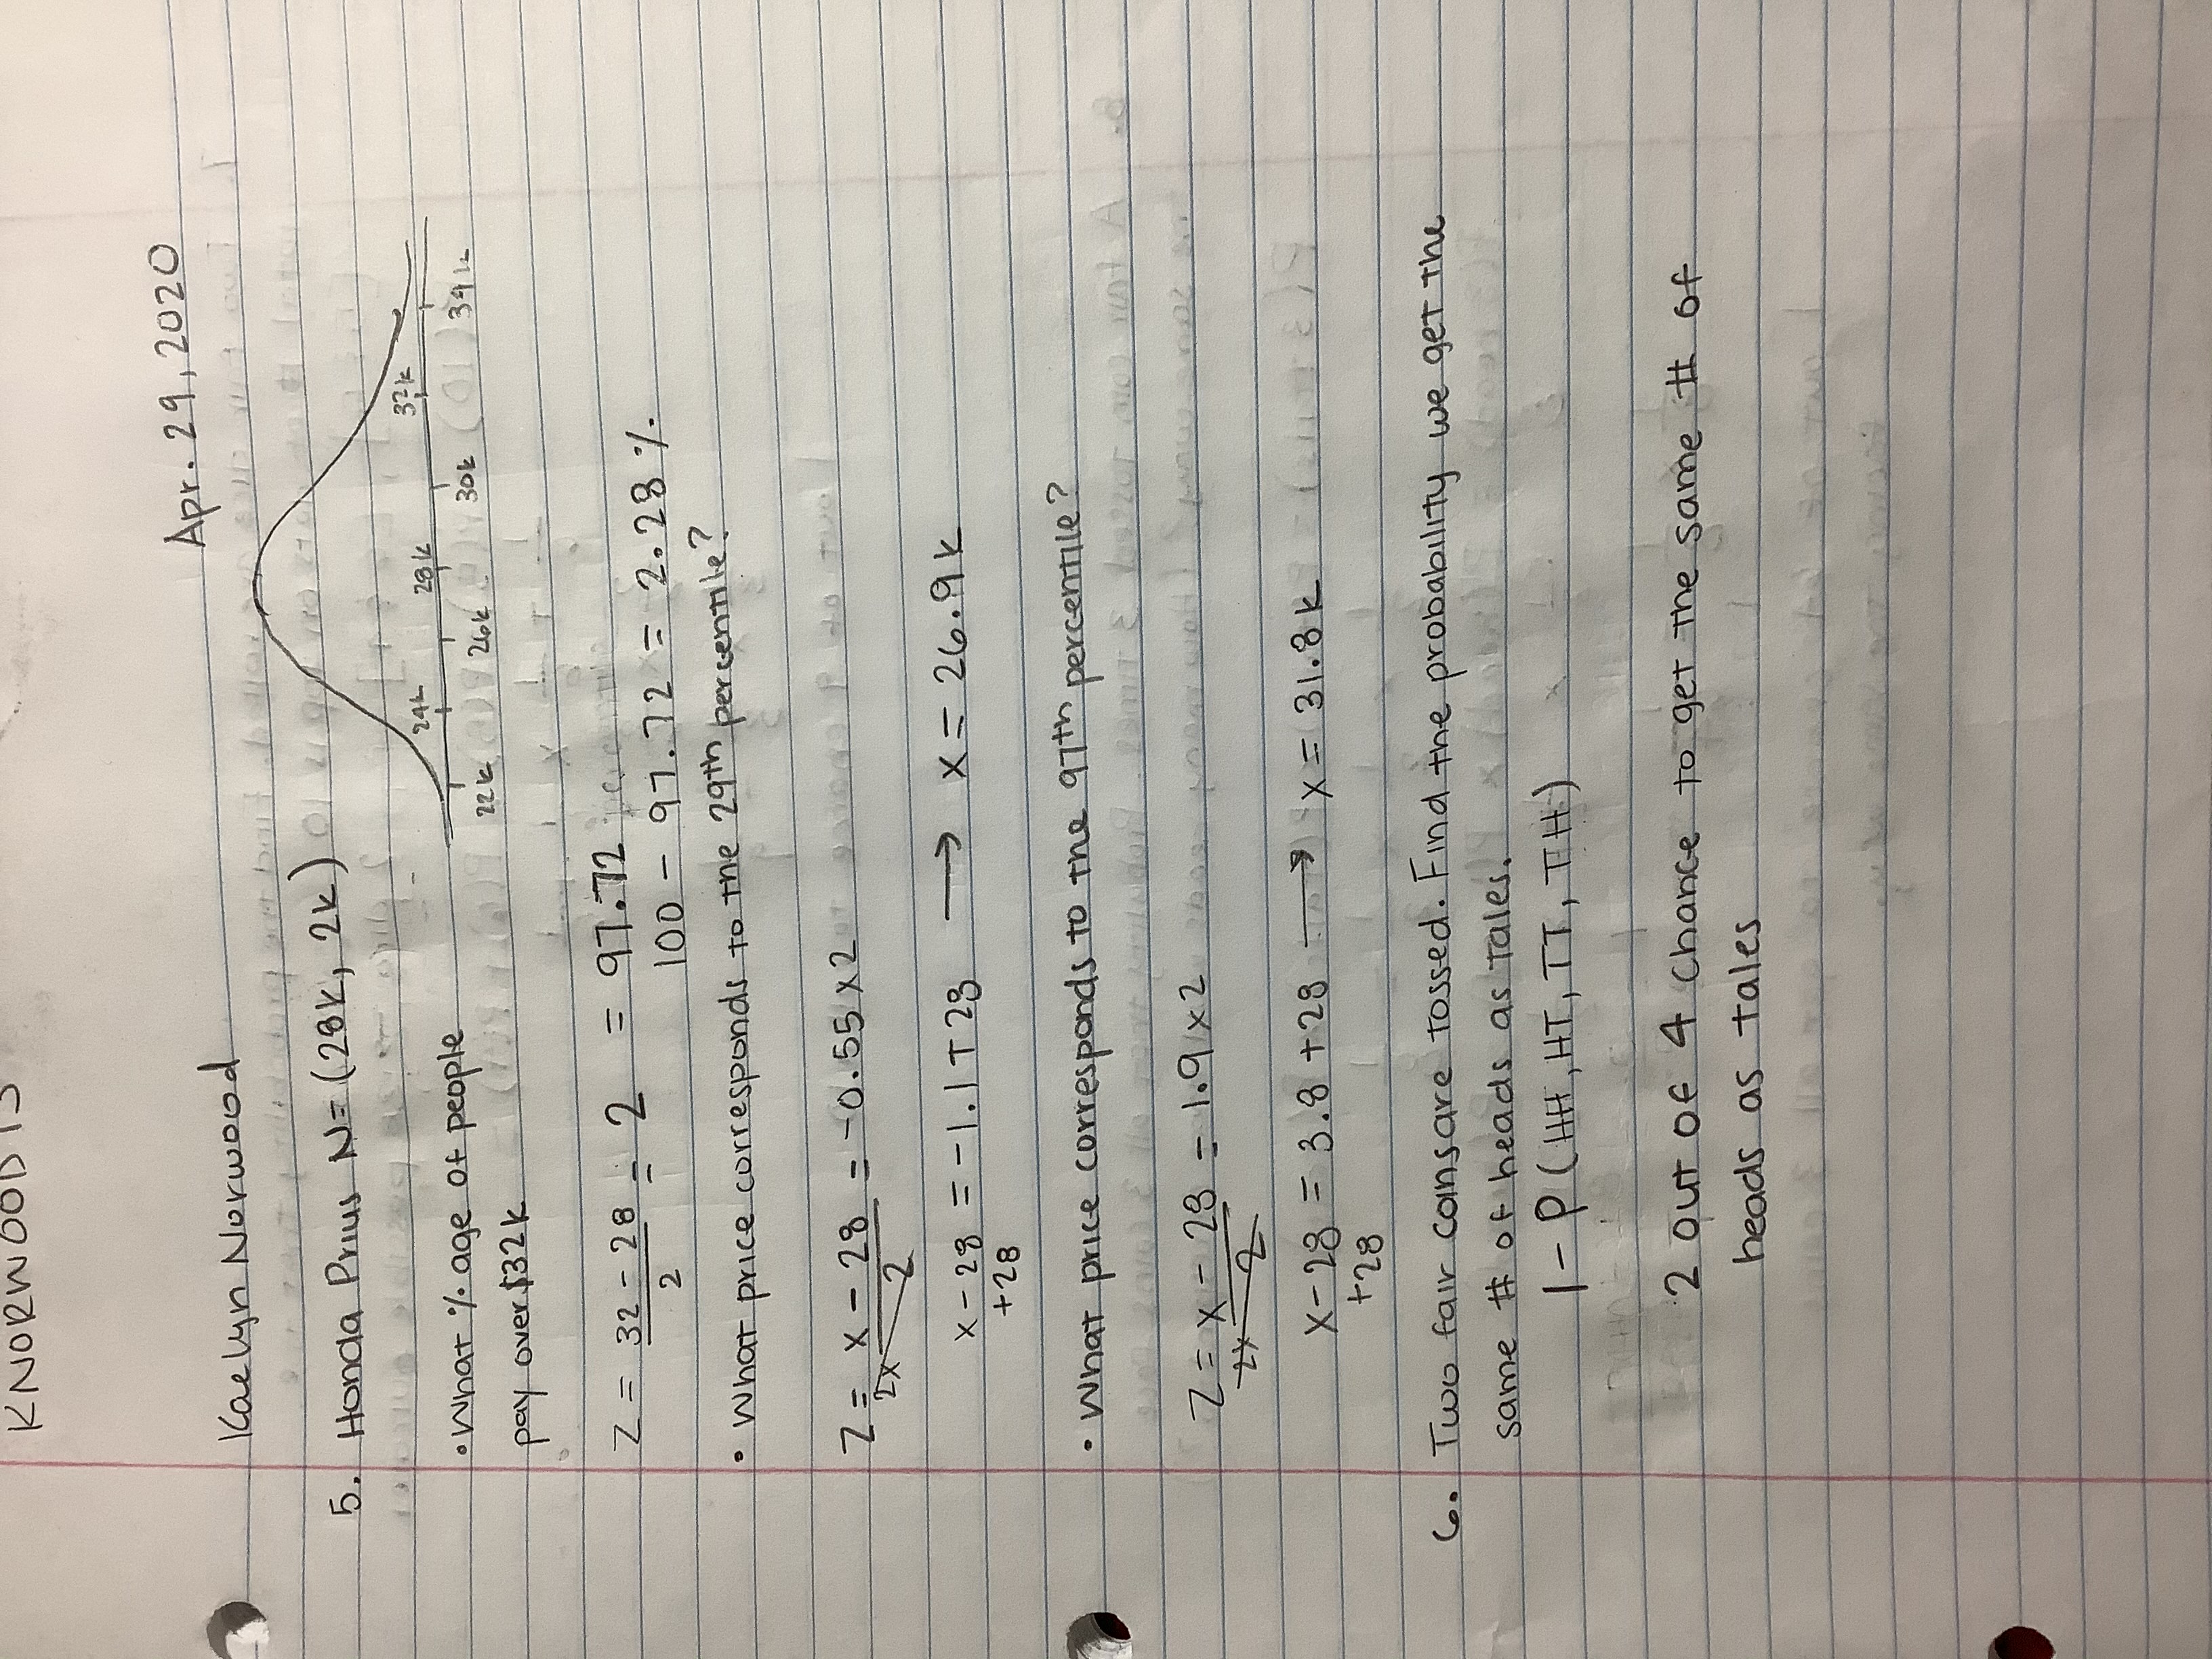 KNORWOOD13
Kaelyn Norwood
Apr. 29, 2020
5. Honda Prius N=(28K, 2K)
22K 24K 26K 28K 30K 32K 34K
• What % age of people
pay over $32K
Z = 32 - 28 / 2 = 2 = 97.72
100 - 97.72 = 2.28 %
• What price corresponds to the 29th percentile?
Z = x - 28 / 2 = -0.55 x 2
2x
x - 28 = -1.1 + 28 → x = 26.9K
+28
• What price corresponds to the 97th percentile?
Z = x - 28 / 2 = 1.9 x 2
2x
x - 28 = 3.8 + 28 → x = 31.8K
+28
6. Two fair coins are tossed. Find the probability we get the
same # of heads as tales.
1 - P (HH, HT, TT, TH)
2 out of 4 chance to get the same # of
heads as tales